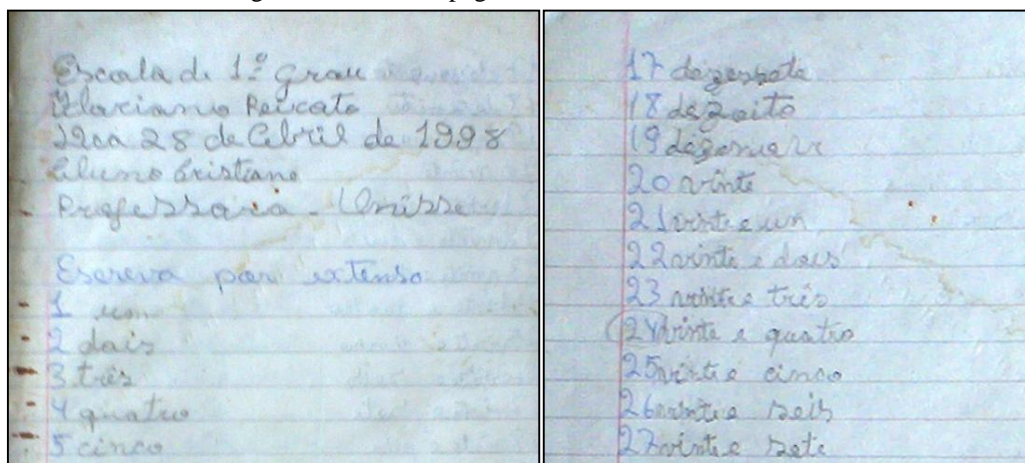 Escola de 1º grau
Floriano Peixoto
28 de Abril de 1998
Aluno Cristiano
Professora
Escreva por extenso
1 um
2 dois
3 três
4 quatro
5 cinco
17 dezessete
18 dezoito
19 dezenove
20 vinte
21 vinte e um
22 vinte e dois
23 vinte e três
24 vinte e quatro
25 vinte e cinco
26 vinte e seis
27 vinte e sete